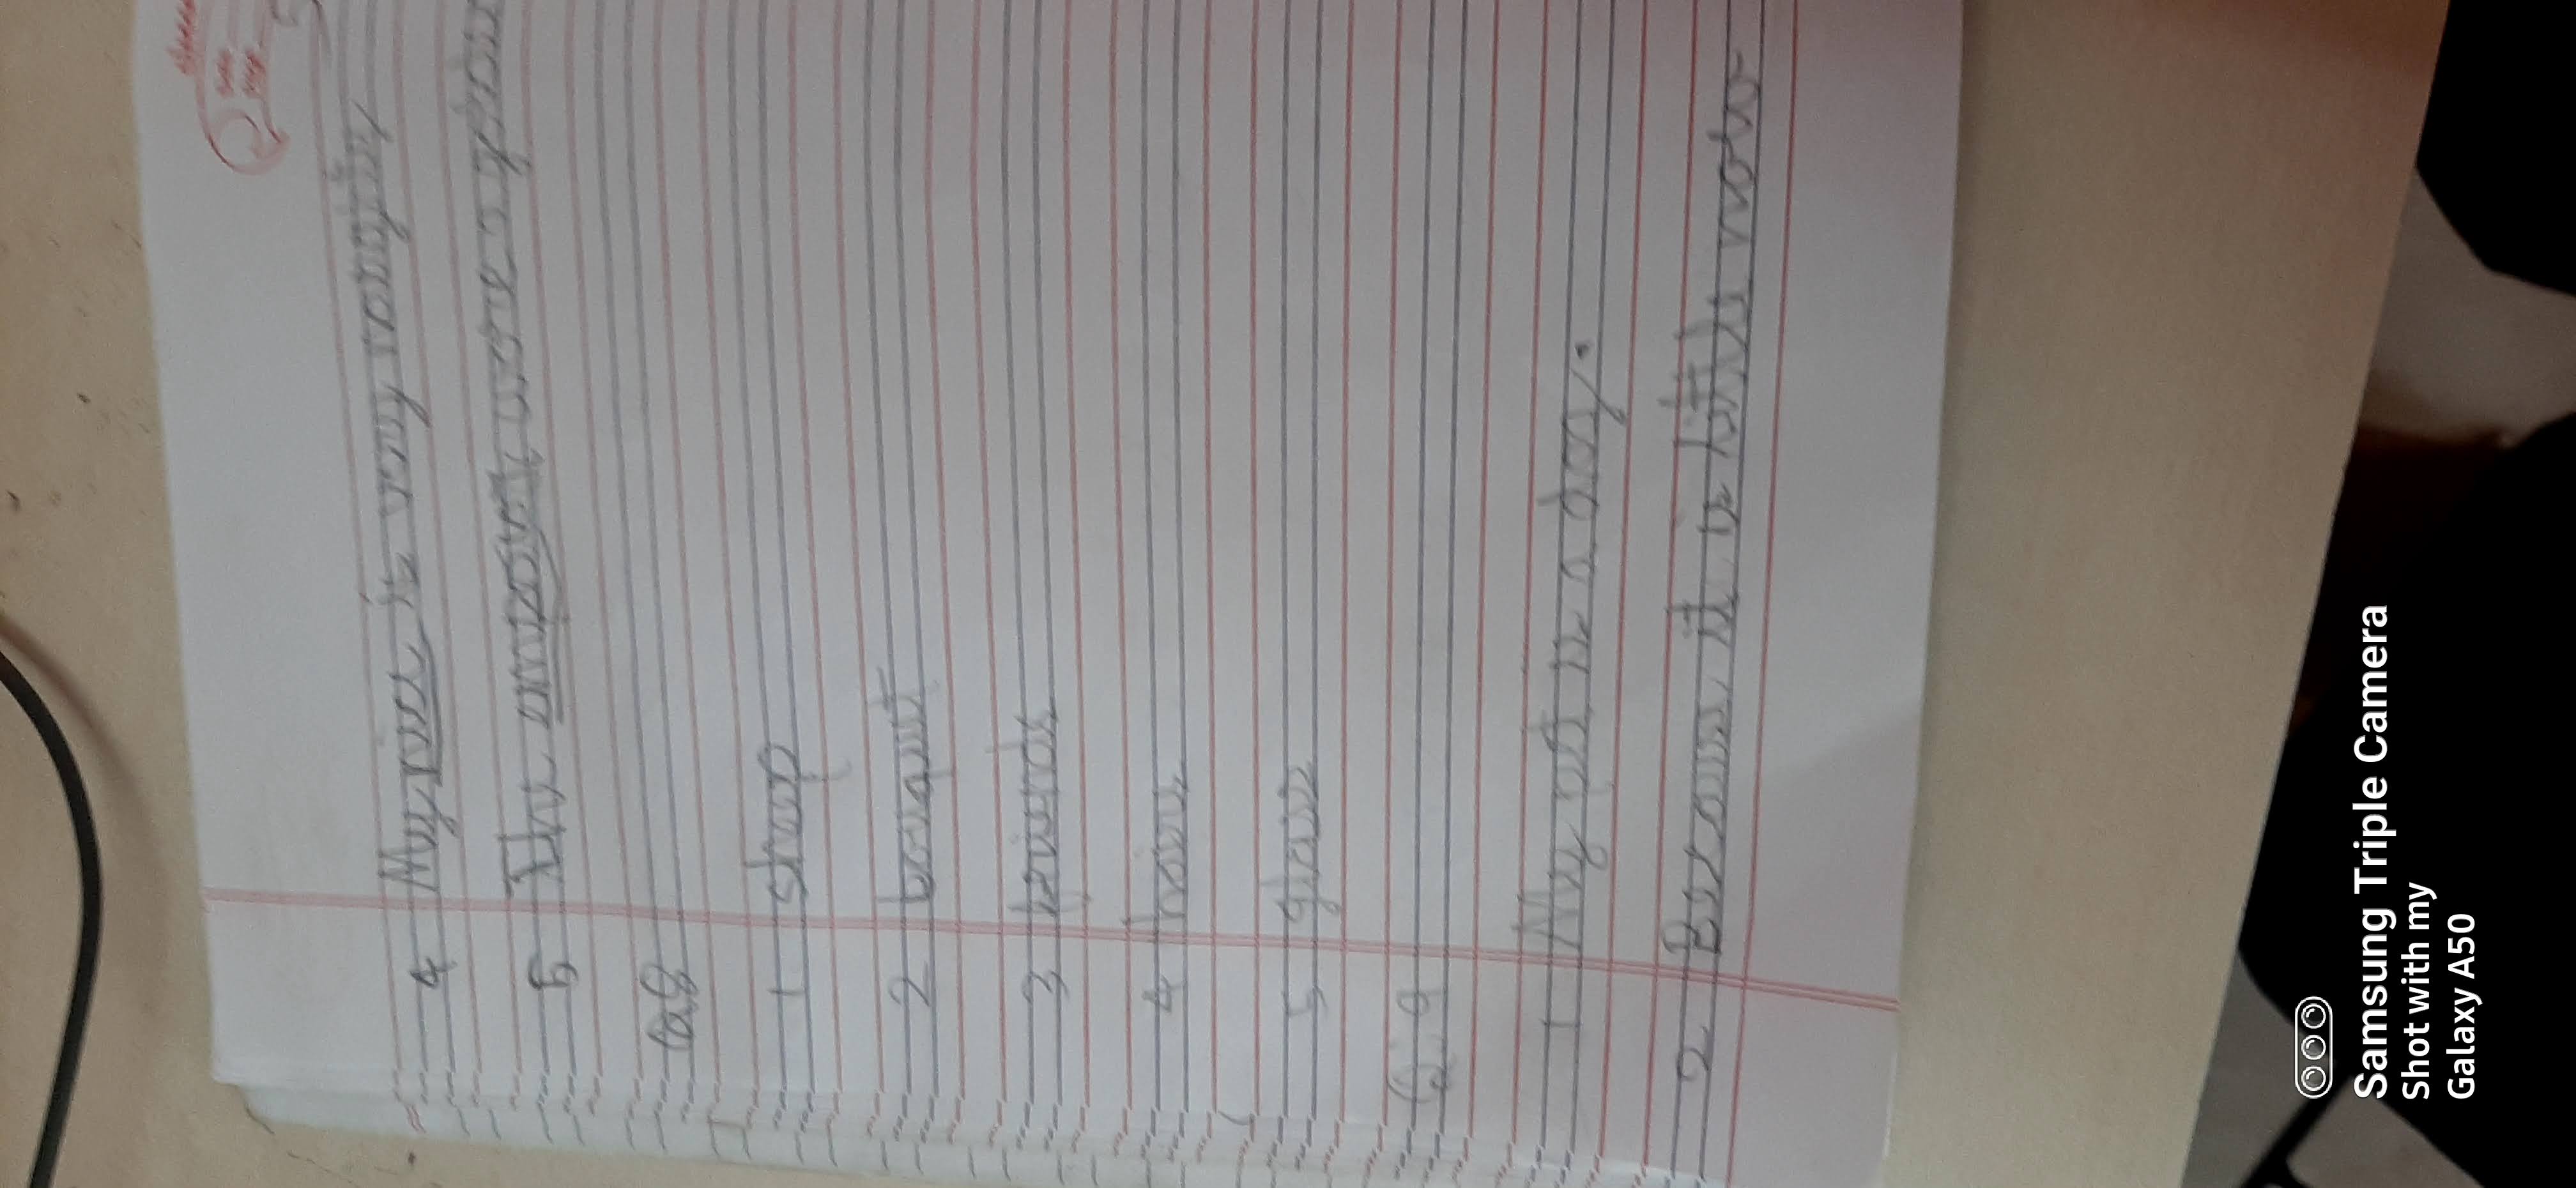 classmate
Date
Page
5
4 My niece is very naughty
5 The empress wore a golden
Q8
1 sheep
2 bouquet
3 friends
4 hair
5 glass
Q.9
1 My pet is a dog.
2 Because it is little now
Samsung Triple Camera
Shot with my
Galaxy A50